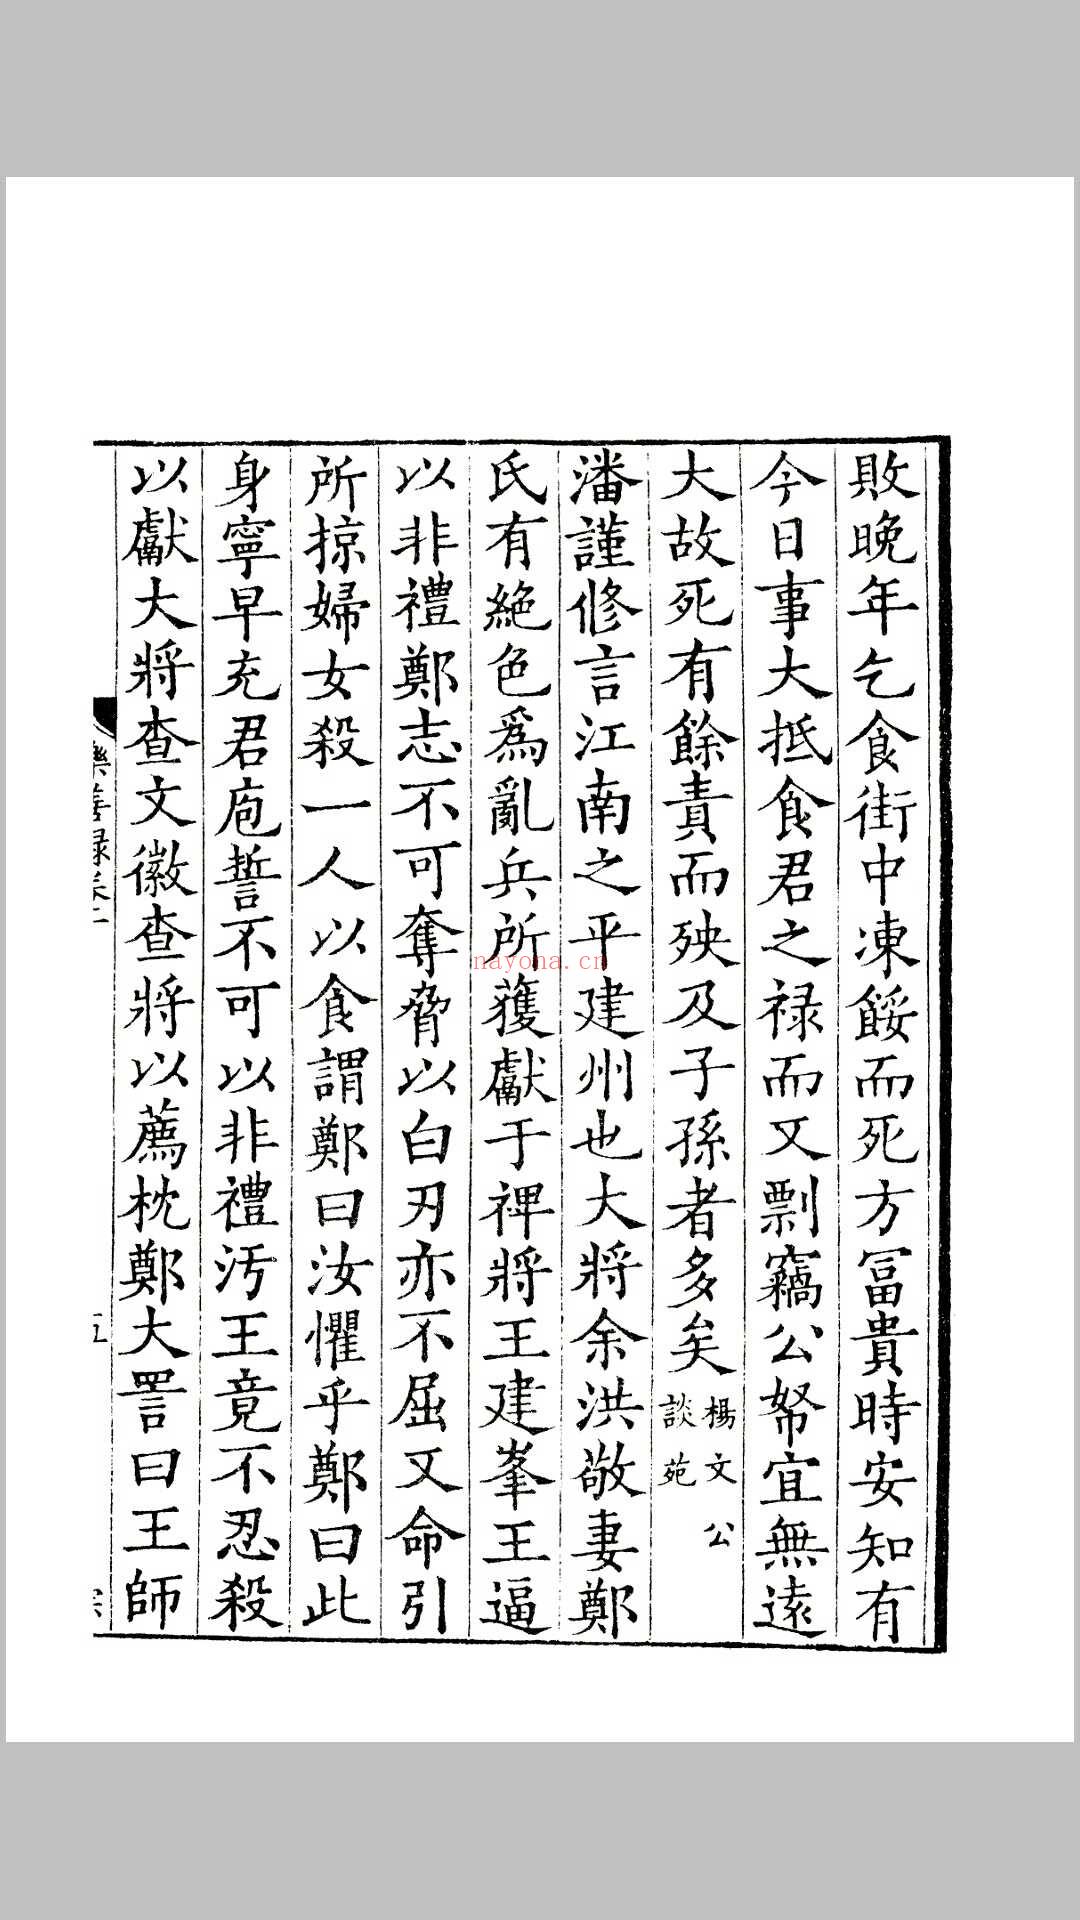 敗晚年乞食街中凍餒而死方冨貴時安知有
今日事大抵食君之禄而又剽竊公帑宜無逺
大故死有餘責而殃及子孫者多矣楊文公
談苑
潘謹修言江南之平建州也大將余洪敬妻鄭
氏有絶色爲亂兵所獲獻于裨將王建峯王逼
以非禮鄭志不可奪脅以白刃亦不屈又命引
所掠婦女殺一人以食謂鄭曰汝懼乎鄭曰此
身寧早充君庖誓不可以非禮汚王竟不忍殺
以獻大將查文徽查將以薦枕鄭大詈曰王師
樂善録卷二
五
nayona.cn